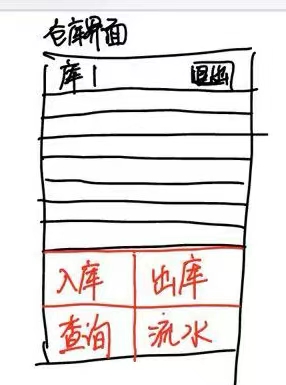 仓库界面
库1 退出
入库 出库
查询 流水